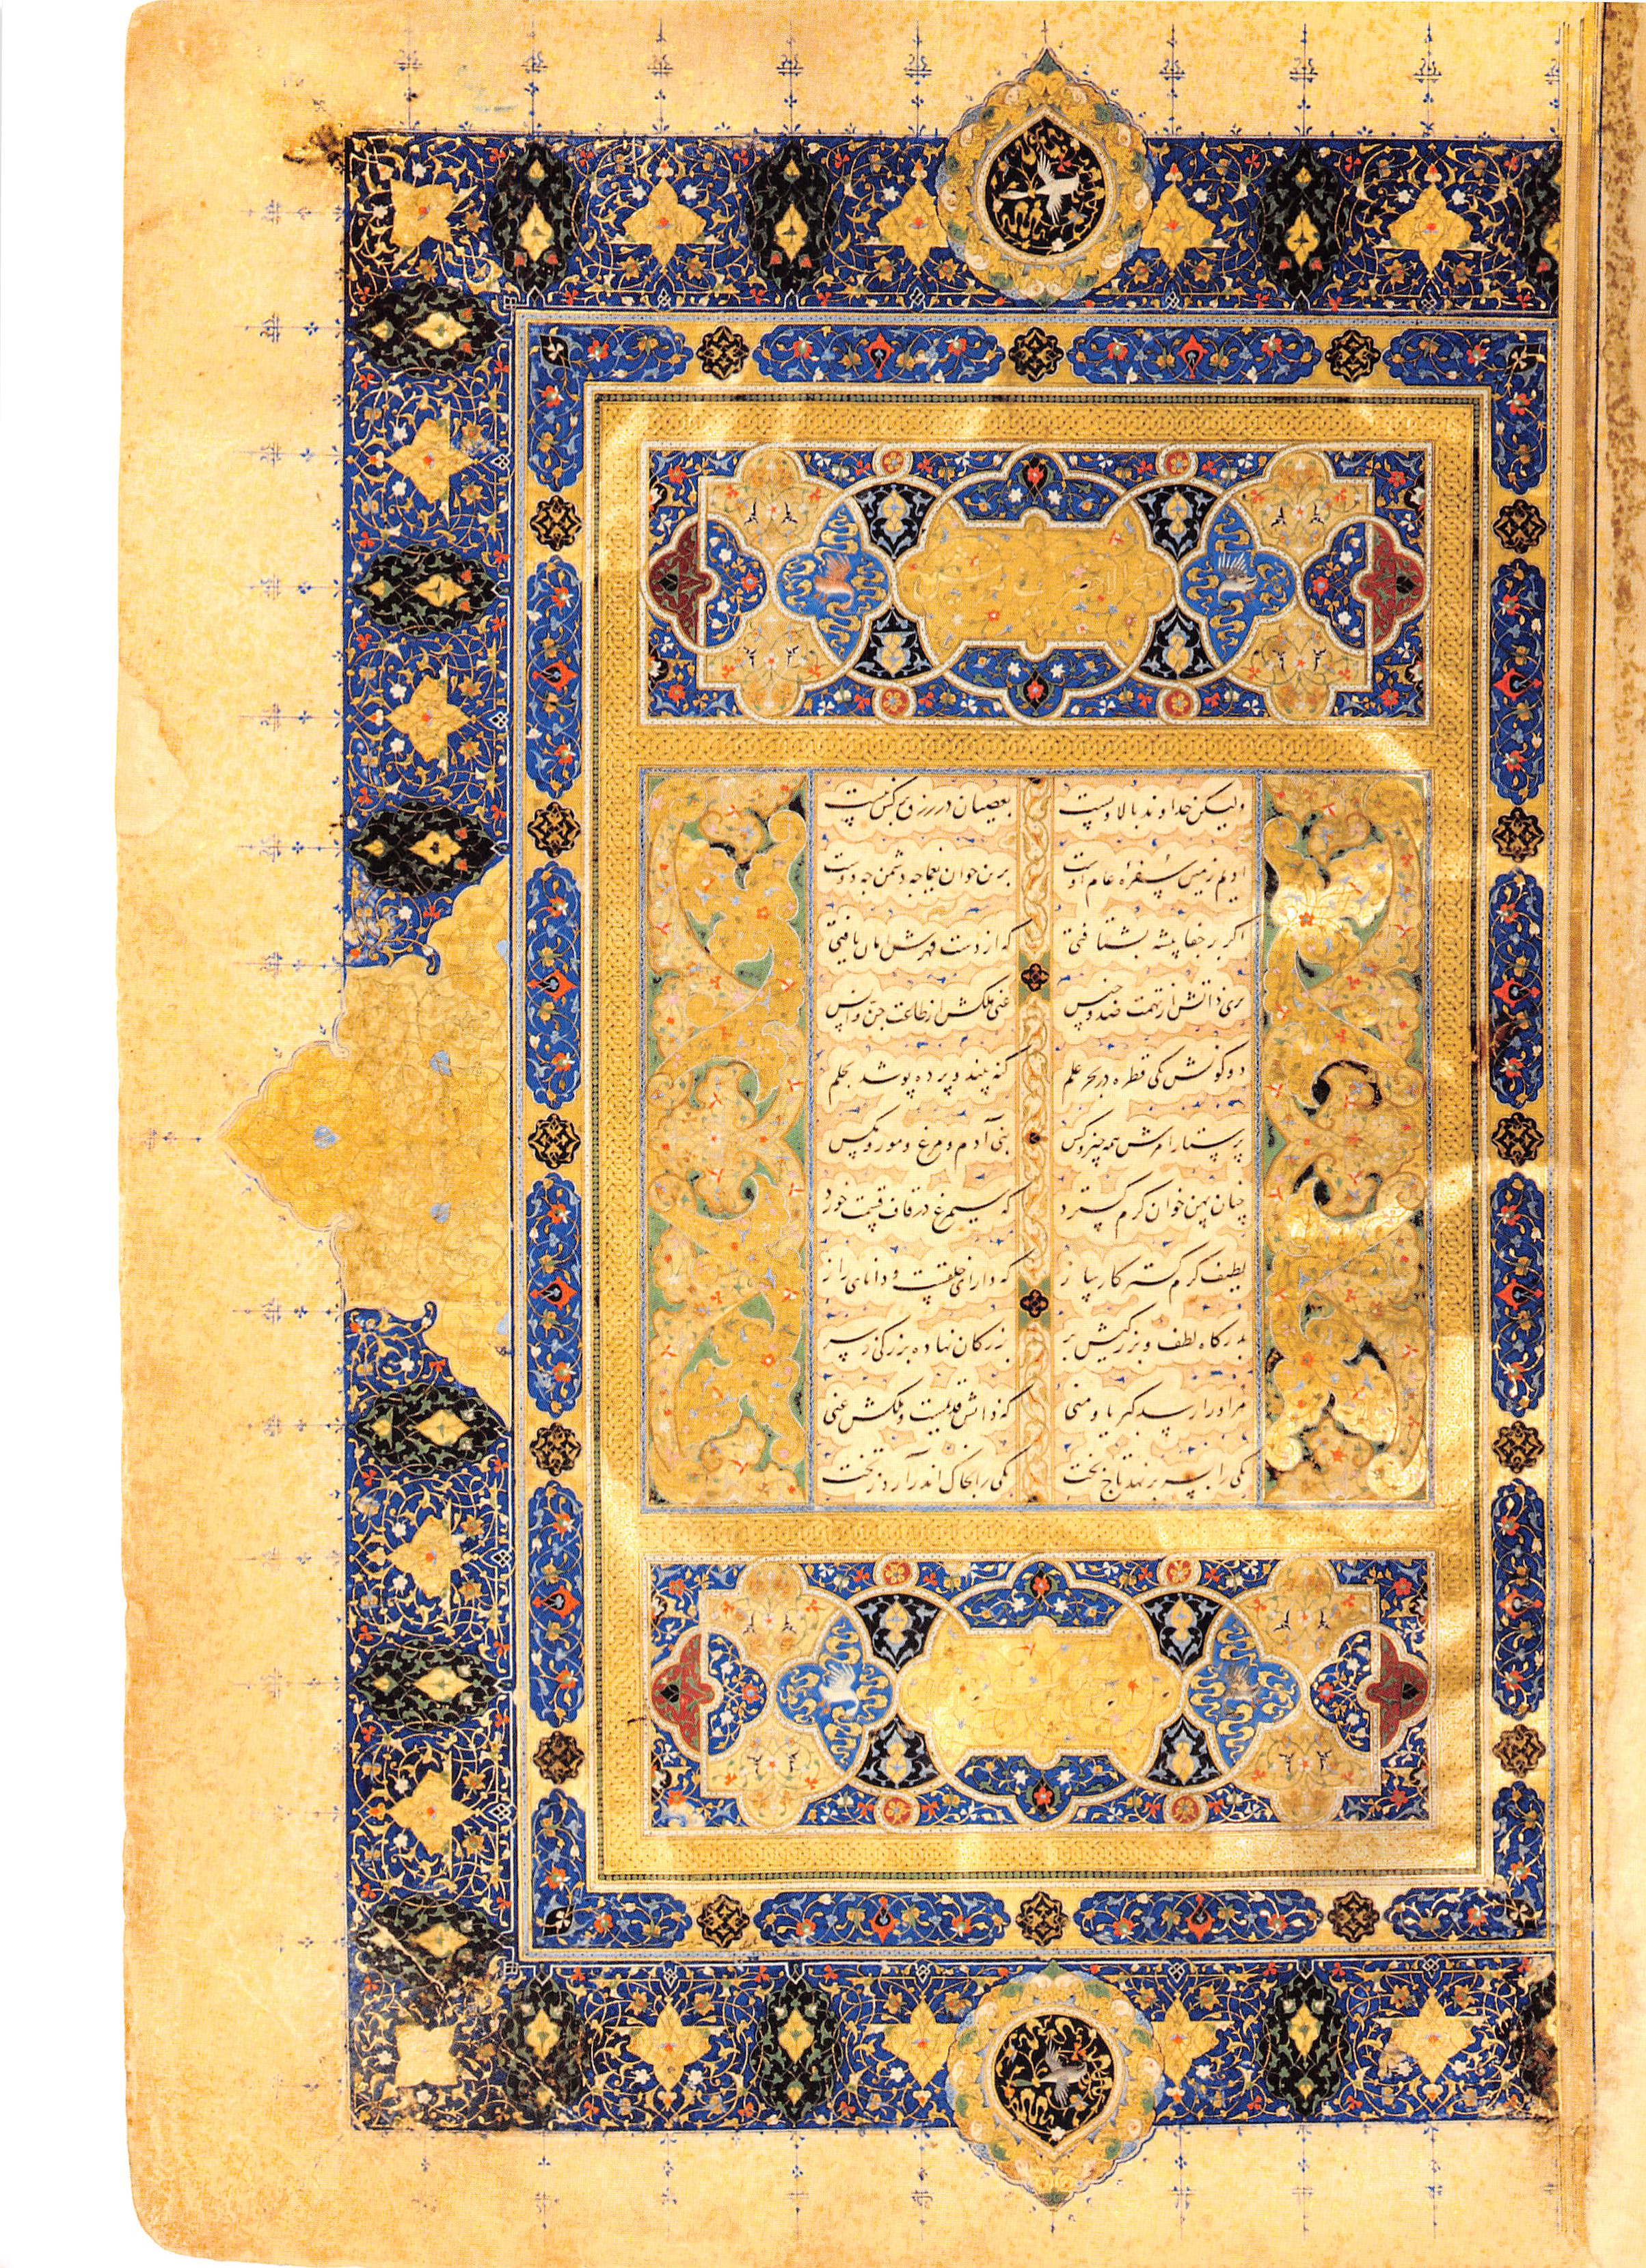 ولیکن خداوند بالا و پست بعصیان در رزق بر کس نبست
ادیم زمین سفرهٔ عام اوست برین خوان یغما چه دشمن چه دوست
اگر بر جفا پیشه بشتافتی که از دست قهرش امان یافتی
بری ذاتش از تهمت ضد و جنس غنی ملکش از طاعت جن و انس
دو کونش یکی قطره در بحر علم گنه بیند و پرده پوشد بحلم
پرستار امرش همه چیز و کس بنی آدم و مرغ و مور و مگس
چنان پهن خوان کرم گسترد که سیمرغ در قاف قسمت خورد
لطیف کرم گستر کارساز که دارای خلقست و دانای راز
بدرگاه لطف و بزرگیش بر بزرگان نهاده بزرگی ز سر
مر او را رسد کبریا و منی که ذاتش قدیمست و ملکش غنی
یکی را بسر بر نهد تاج بخت یکی را بخاک اندر آرد ز تخت